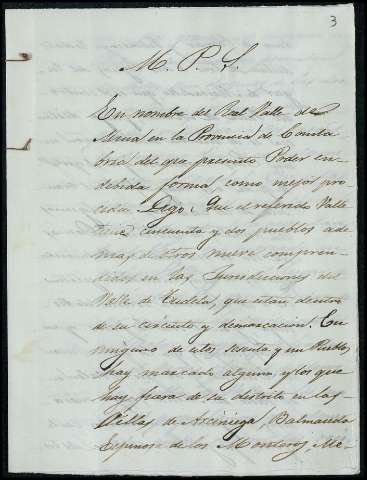 3
M. P. S.
En nombre del Real Valle de
Mena en la Provincia de Canta
bria del que presento Poder en
debida forma, como mejor pro
ceda Digo: Que el referido Valle
tiene cincuenta y dos pueblos ade
mas de otros nueve compren-
didos en las Jurisdiciones del
Valle de Tudela, que estan dentro
de su circuito y demarcacion. En
ninguno de estos sesenta y un Pueblos
hay mercado alguno, y los que
hay fuera de su distrito en las
Villas de Arciniega, Balmaseda
Espinosa de los Monteros, Me-